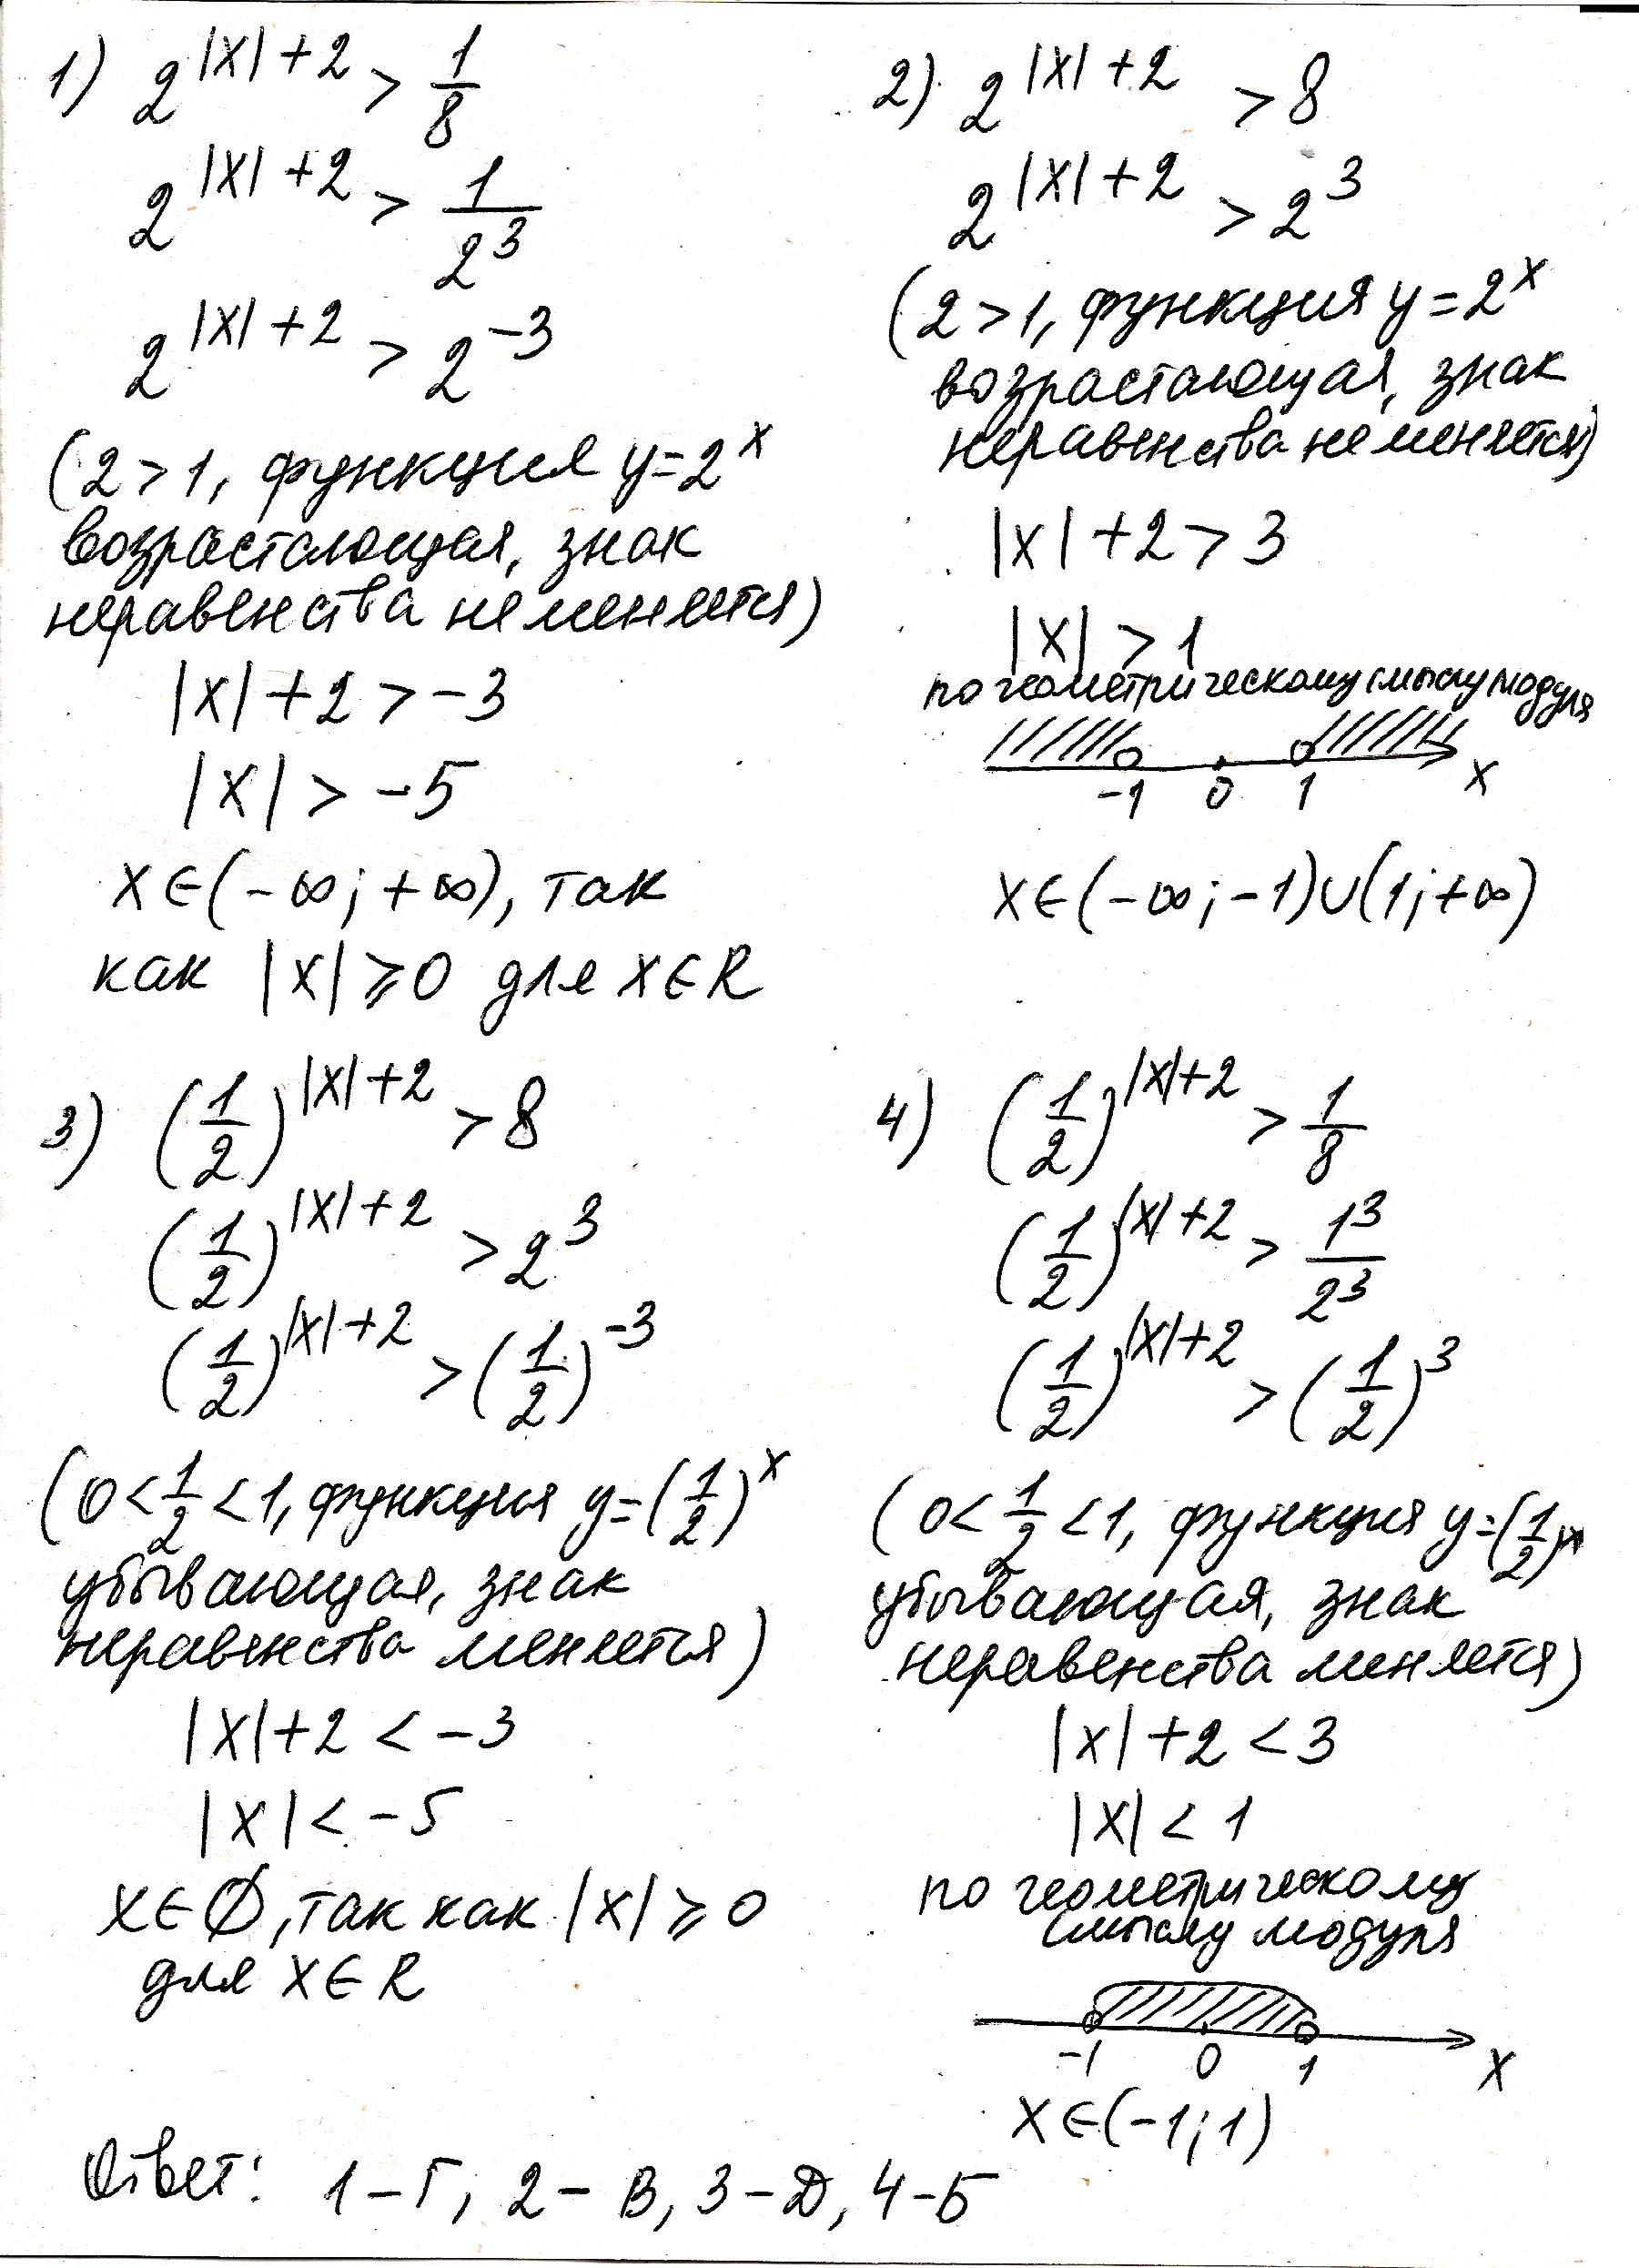 1) 2^{|x|+2} > 1/8
2^{|x|+2} > 1/2^3
2^{|x|+2} > 2^{-3}
(2 > 1, функция y=2^x
возрастающая, знак
неравенства не меняется)
|x|+2 > -3
|x| > -5
x∈(-∞; +∞), так
как |x| ≥ 0 для x∈R
2) 2^{|x|+2} > 8
2^{|x|+2} > 2^3
(2 > 1, функция y=2^x
возрастающая, знак
неравенства не меняется)
|x|+2 > 3
|x| > 1
по геометрическому смыслу модуля
-1 0 1 x
x∈(-∞; -1)∪(1; +∞)
3) (1/2)^{|x|+2} > 8
(1/2)^{|x|+2} > 2^3
(1/2)^{|x|+2} > (1/2)^{-3}
(0 < 1/2 < 1, функция y=(1/2)^x
убывающая, знак
неравенства меняется)
|x|+2 < -3
|x| < -5
x∈∅, так как |x| ≥ 0
для x∈R
4) (1/2)^{|x|+2} > 1/8
(1/2)^{|x|+2} > 1^3/2^3
(1/2)^{|x|+2} > (1/2)^3
(0 < 1/2 < 1, функция y=(1/2)^x
убывающая, знак
неравенства меняется)
|x|+2 < 3
|x| < 1
по геометрическому
смыслу модуля
-1 0 1 x
x∈(-1; 1)
Ответ: 1-Г, 2-В, 3-Д, 4-Б